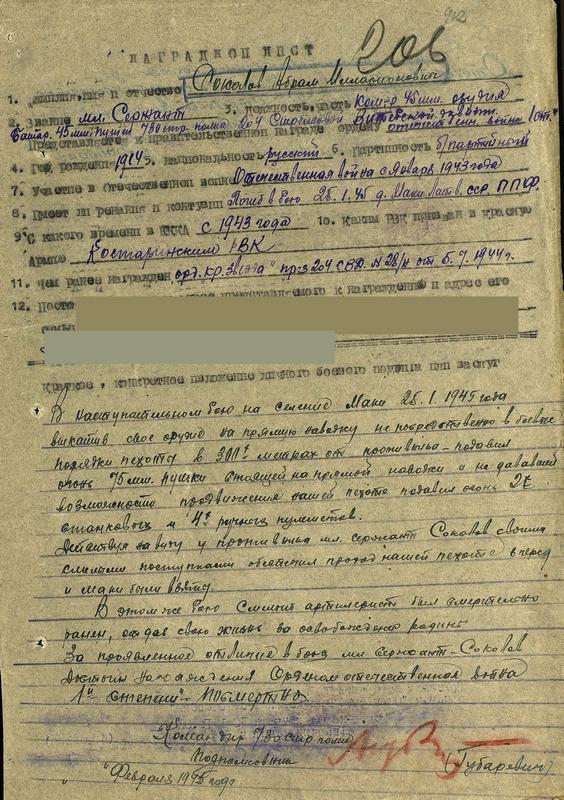 НАГРАДНОЙ ЛИСТ
1. Фамилия, имя и отчество Соколов Абрам Илларионович
2. Звание мл. Сержант 3. Должность, часть Ком-р 45 мм. орудия
Батар. 45 мм. пушек 730 стр. полка 204 Стрелковой Витебской дивизии
Представляется к правительственной награде ордену отечествен. война 1 ст."
4. Год рождения 1914 5. Национальность русский 6. Партийность б/партейный
7. Участие в Отечественной войне Отечественная война с января 1943 года
8. Имеет ли ранения и контузии Погиб в бою 25.1.45 д. Маки Латв. сср. ППФ.
9. С какого времени в РККА с 1943 года 10. Каким РВК призван в Красную
Армию Костаринским РВК
11. Чем ранее награжден орд. Кр. Звезда" пр-з 204 СВД. N 28/н от 5.7.1944 г.
12. представляемого к награждению и адрес его
Краткое, конкретное изложение личного боевого подвига или заслуг
В наступательном бою на селение Маки 25.1.1945 года
выкатив свое орудие на прямую наводку не посредственно в боевые
порядки пехоты в 300х метрах от противника – подавил
огонь 75 мм. пушки стоящей на прямой наводки и не дававшей
возможности продвижения нашей пехоте подавил огонь 2х
станковых и 4х ручных пулеметов.
Действуя на виду у противника мл. сержант Соколов своими
смелыми поступками обеспечил проход нашей пехоте вперед
и Маки были взяты.
В этом же бою смелый артилерист был смертельно
ранен, отдав свою жизнь за освобождение родины
За проявленное отличие в боях мл. сержант – Соколов
достоин награждения Орденом отечественная война
1й степени" – Посмертно.
"Командир 730 стр полка
Подполковник (Губаревич)
" " Февраля 1945 года.